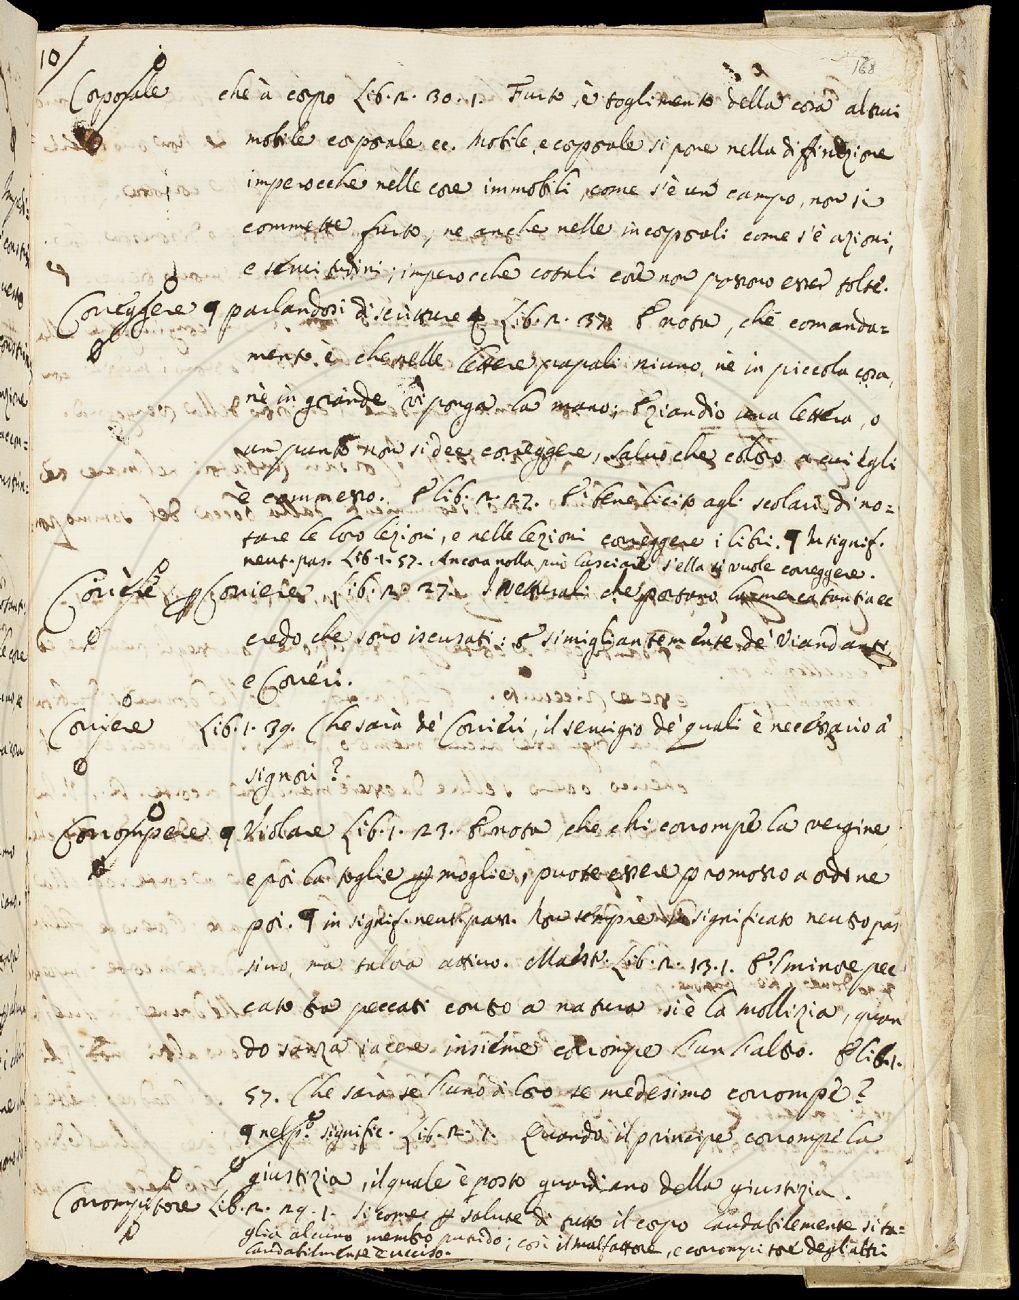 10
168
Corporale che à corpo Lib. 2. 30. 1. Furto è toglimento della cosa altrui
mobile corporale ec. Mobile, e corporale si pone nella diffinizione
imperocche nelle cose immobili, come s'è un campo, non si
commette furto, ne anche nelle incorporali come s'è azioni,
e servitudini; imperocche cotali cose non possono esser tolte.
Correggere ¶ parlandosi di scritture Lib. 2. 37. E nota, che comanda=
mento è che nelle lettere papali niuno, nè in piccola cosa,
nè in grande vi ponga la mano; Eziandio una lettera, o
un punto non si dee correggere, salvo che coloro a cui egli
è commesso. E lib. 2. 27. E' bene licito agli scolari di no=
tare le loro lezioni, e nelle lezioni correggere i libri. ¶ In signif.
neut. pas. Lib. 1. 57. Ancora nolla può lasciare s'ella si vuole correggere.
Corriere Lib. 2. 27. I Vetturali che portano la mercatantia ec
credo che sono iscusati: E simigliantemente de' Viandanti
e Corrieri.
Corriere Lib. 1. 39. Che sarà de' Corrieri, il servigio de' quali è necessario a'
signori?
Corrompere ¶ Violare Lib. 1. 23. E nota, che chi corrompe la vergine
e poi la toglie per moglie, puote essere promosso a ordine
poi. ¶ in signif. neut. pass. Non sempre significato neutro pas
sivo, ma talora attivo. Maestr. Lib. 2. 13. 1. E 'l minore pec
cato tra peccati contro a natura si è la mollizia, quan
do sanza iacere insieme corrompe l'un l'altro. E lib. 1.
57. Che sarà se l'uno di loro se medesimo corrompe?
¶ nel pº. signific. Lib. 2. 1. Quando il principe corrompe la
giustizia, il quale è posto guardiano della giustizia.
Corrompitore Lib. 2. 29. 1. Si come per salute di tutto il corpo laudabilemente si ta=
glia alcuno membro putrido; così il malfattore, e corrompitore degli altri
laudabilmente è ucciso.